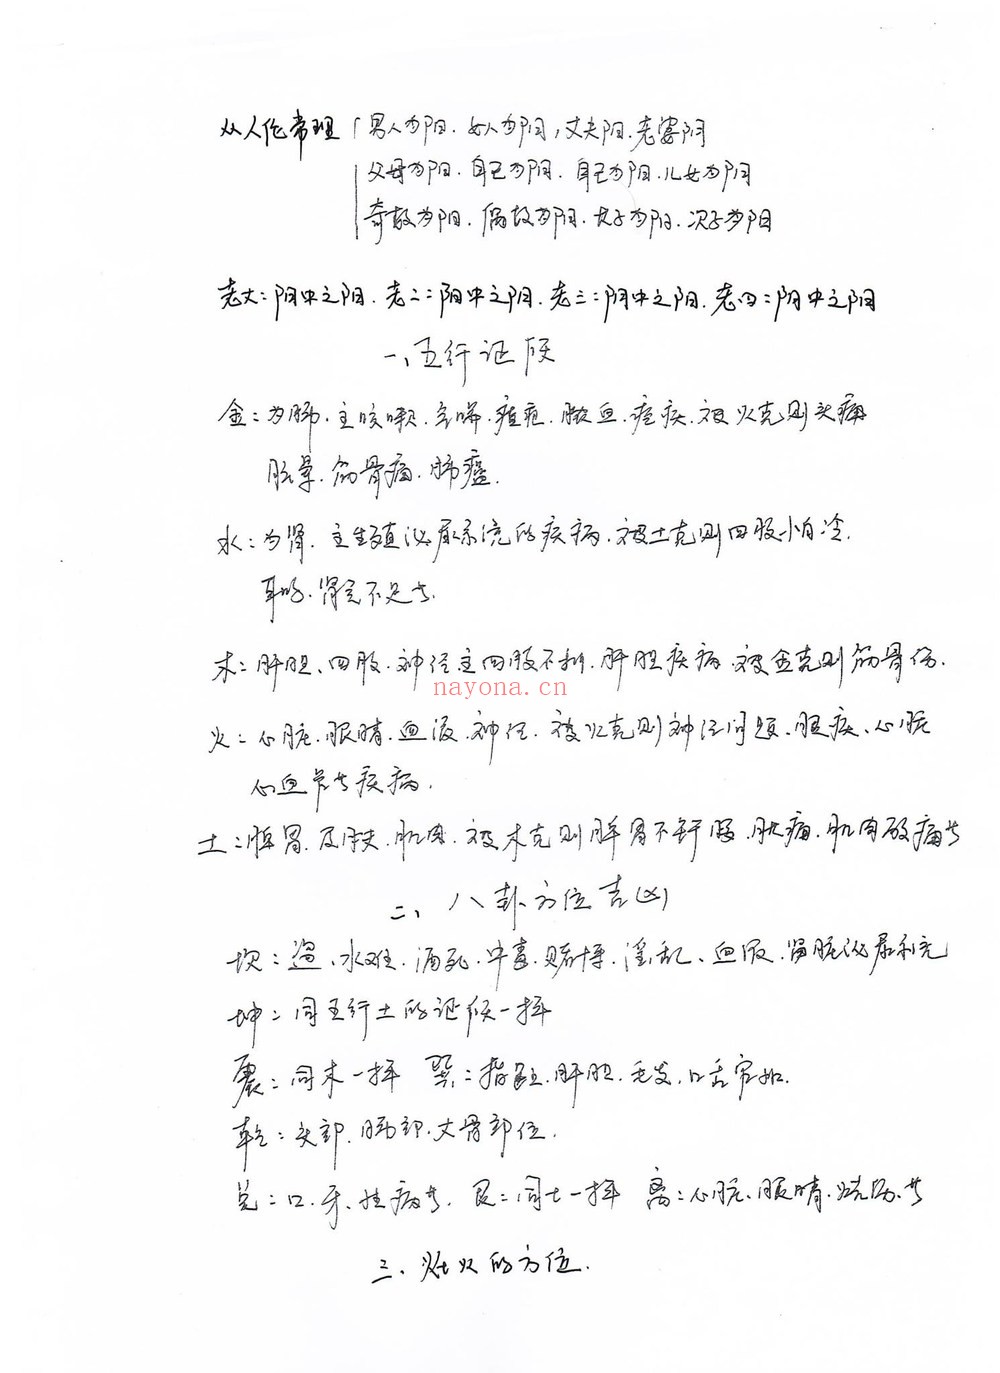 从人伦常理 男人为阳、女人为阴，丈夫阳、老婆阴
父母为阳、自己为阴、自己为阳、儿女为阴
奇数为阳、偶数为阴、长子为阳、次子为阴
老大：阴中之阳、老二：阳中之阴、老三：阴中之阳、老四：阴中之阳
一、五行证候
金：为肺、主咳嗽、气喘、疮疤、脓血、痘疾、被火克则头痛
脑晕、筋骨痛、肺
水：为肾、主生殖泌尿系统的疾病、被土克则四肢怕冷、
耳鸣、肾气不足等、
木：肝胆、四肢、神经主四肢不利、肝胆疾病、被金克则筋骨伤、
nayona.cn
火：心脏、眼睛、血液、神经、被水克则神经问题、眼疾、心脏
心血管等疾病、
土：脾胃、皮肤、肌肉、被木克则脾胃不舒服、肚痛、肌肉酸痛等
二、八卦方位吉凶
坎：盗、水难、酒死、中毒、赌博、淫乱、血液、肾脏泌尿系统
坤：同五行土的证候一样
震：同木一样 巽：指股、肝胆、毛发、口舌官非、
乾：头部、肺部、大骨部位、
兑：口、牙、性病等、艮：同土一样 离：心脏、眼睛、烧伤、等
三、灶火的方位、